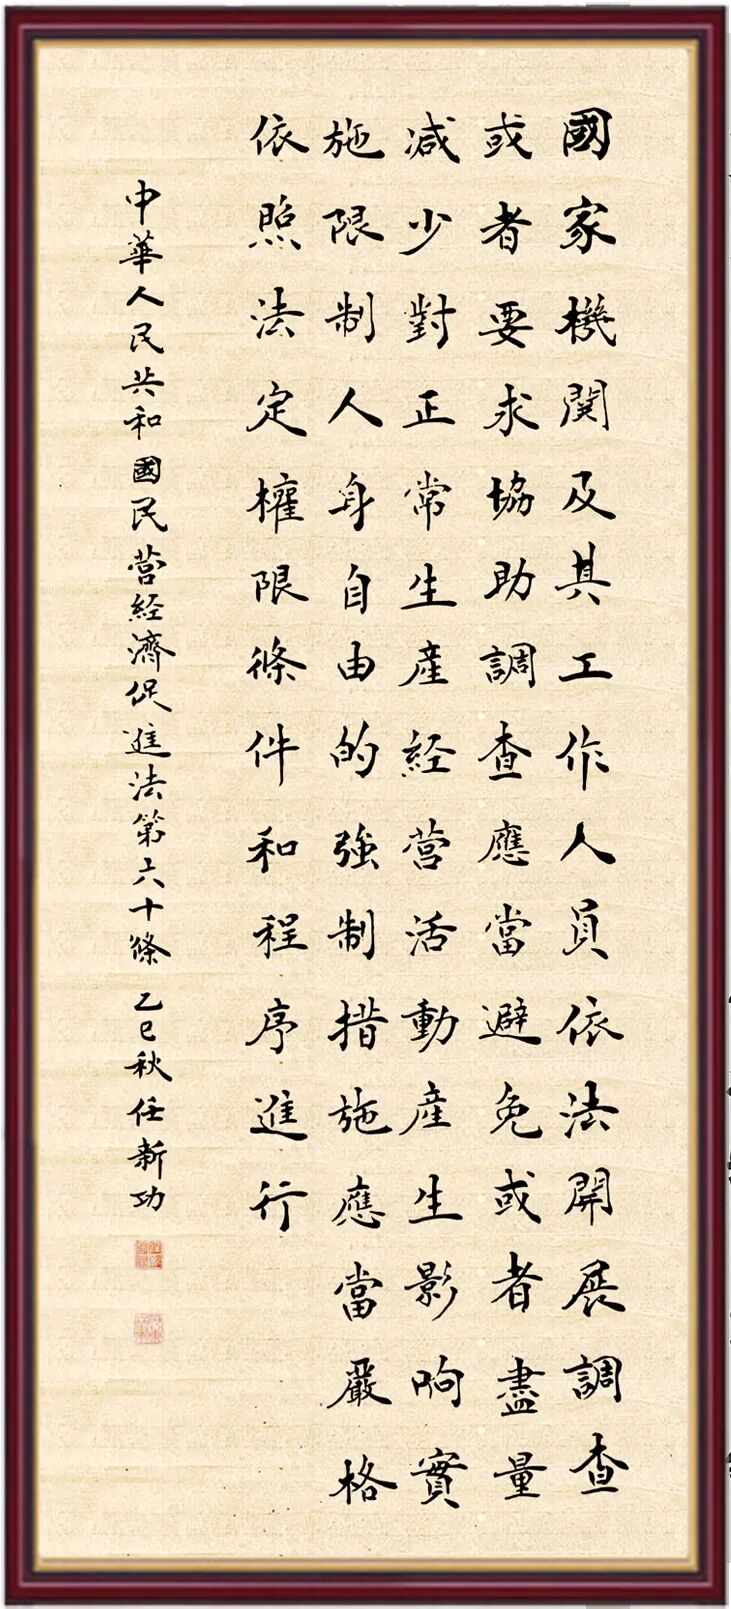 國家機関及其工作人員依法開展調查
或者要求協助調查應當避免或者盡量
减少對正常生産経营活動産生影响實
施限制人身自由的強制措施應當嚴格
依照法定權限條件和程序進行
中華人民共和國民营経濟促進法第六十條 乙巳秋任新功